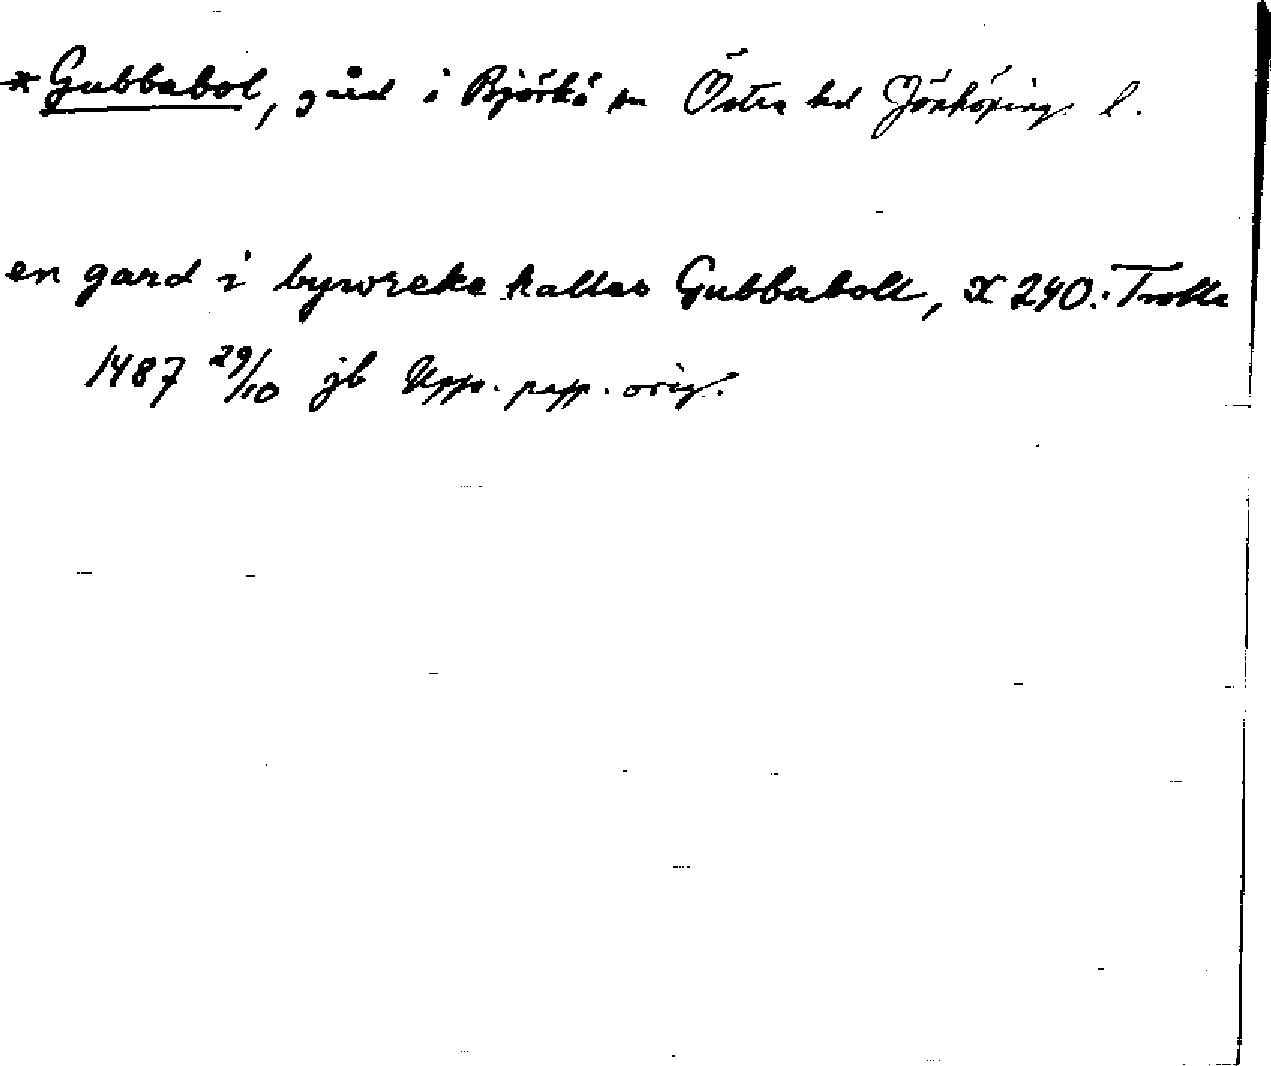 *Gubbabol, gård i Björkö sn Östra hd Jönköpings l.
en gard i byworeke kallas Gubbaboll, X 240: Trolle
1487 29/10 jb Upps. papp. orig.